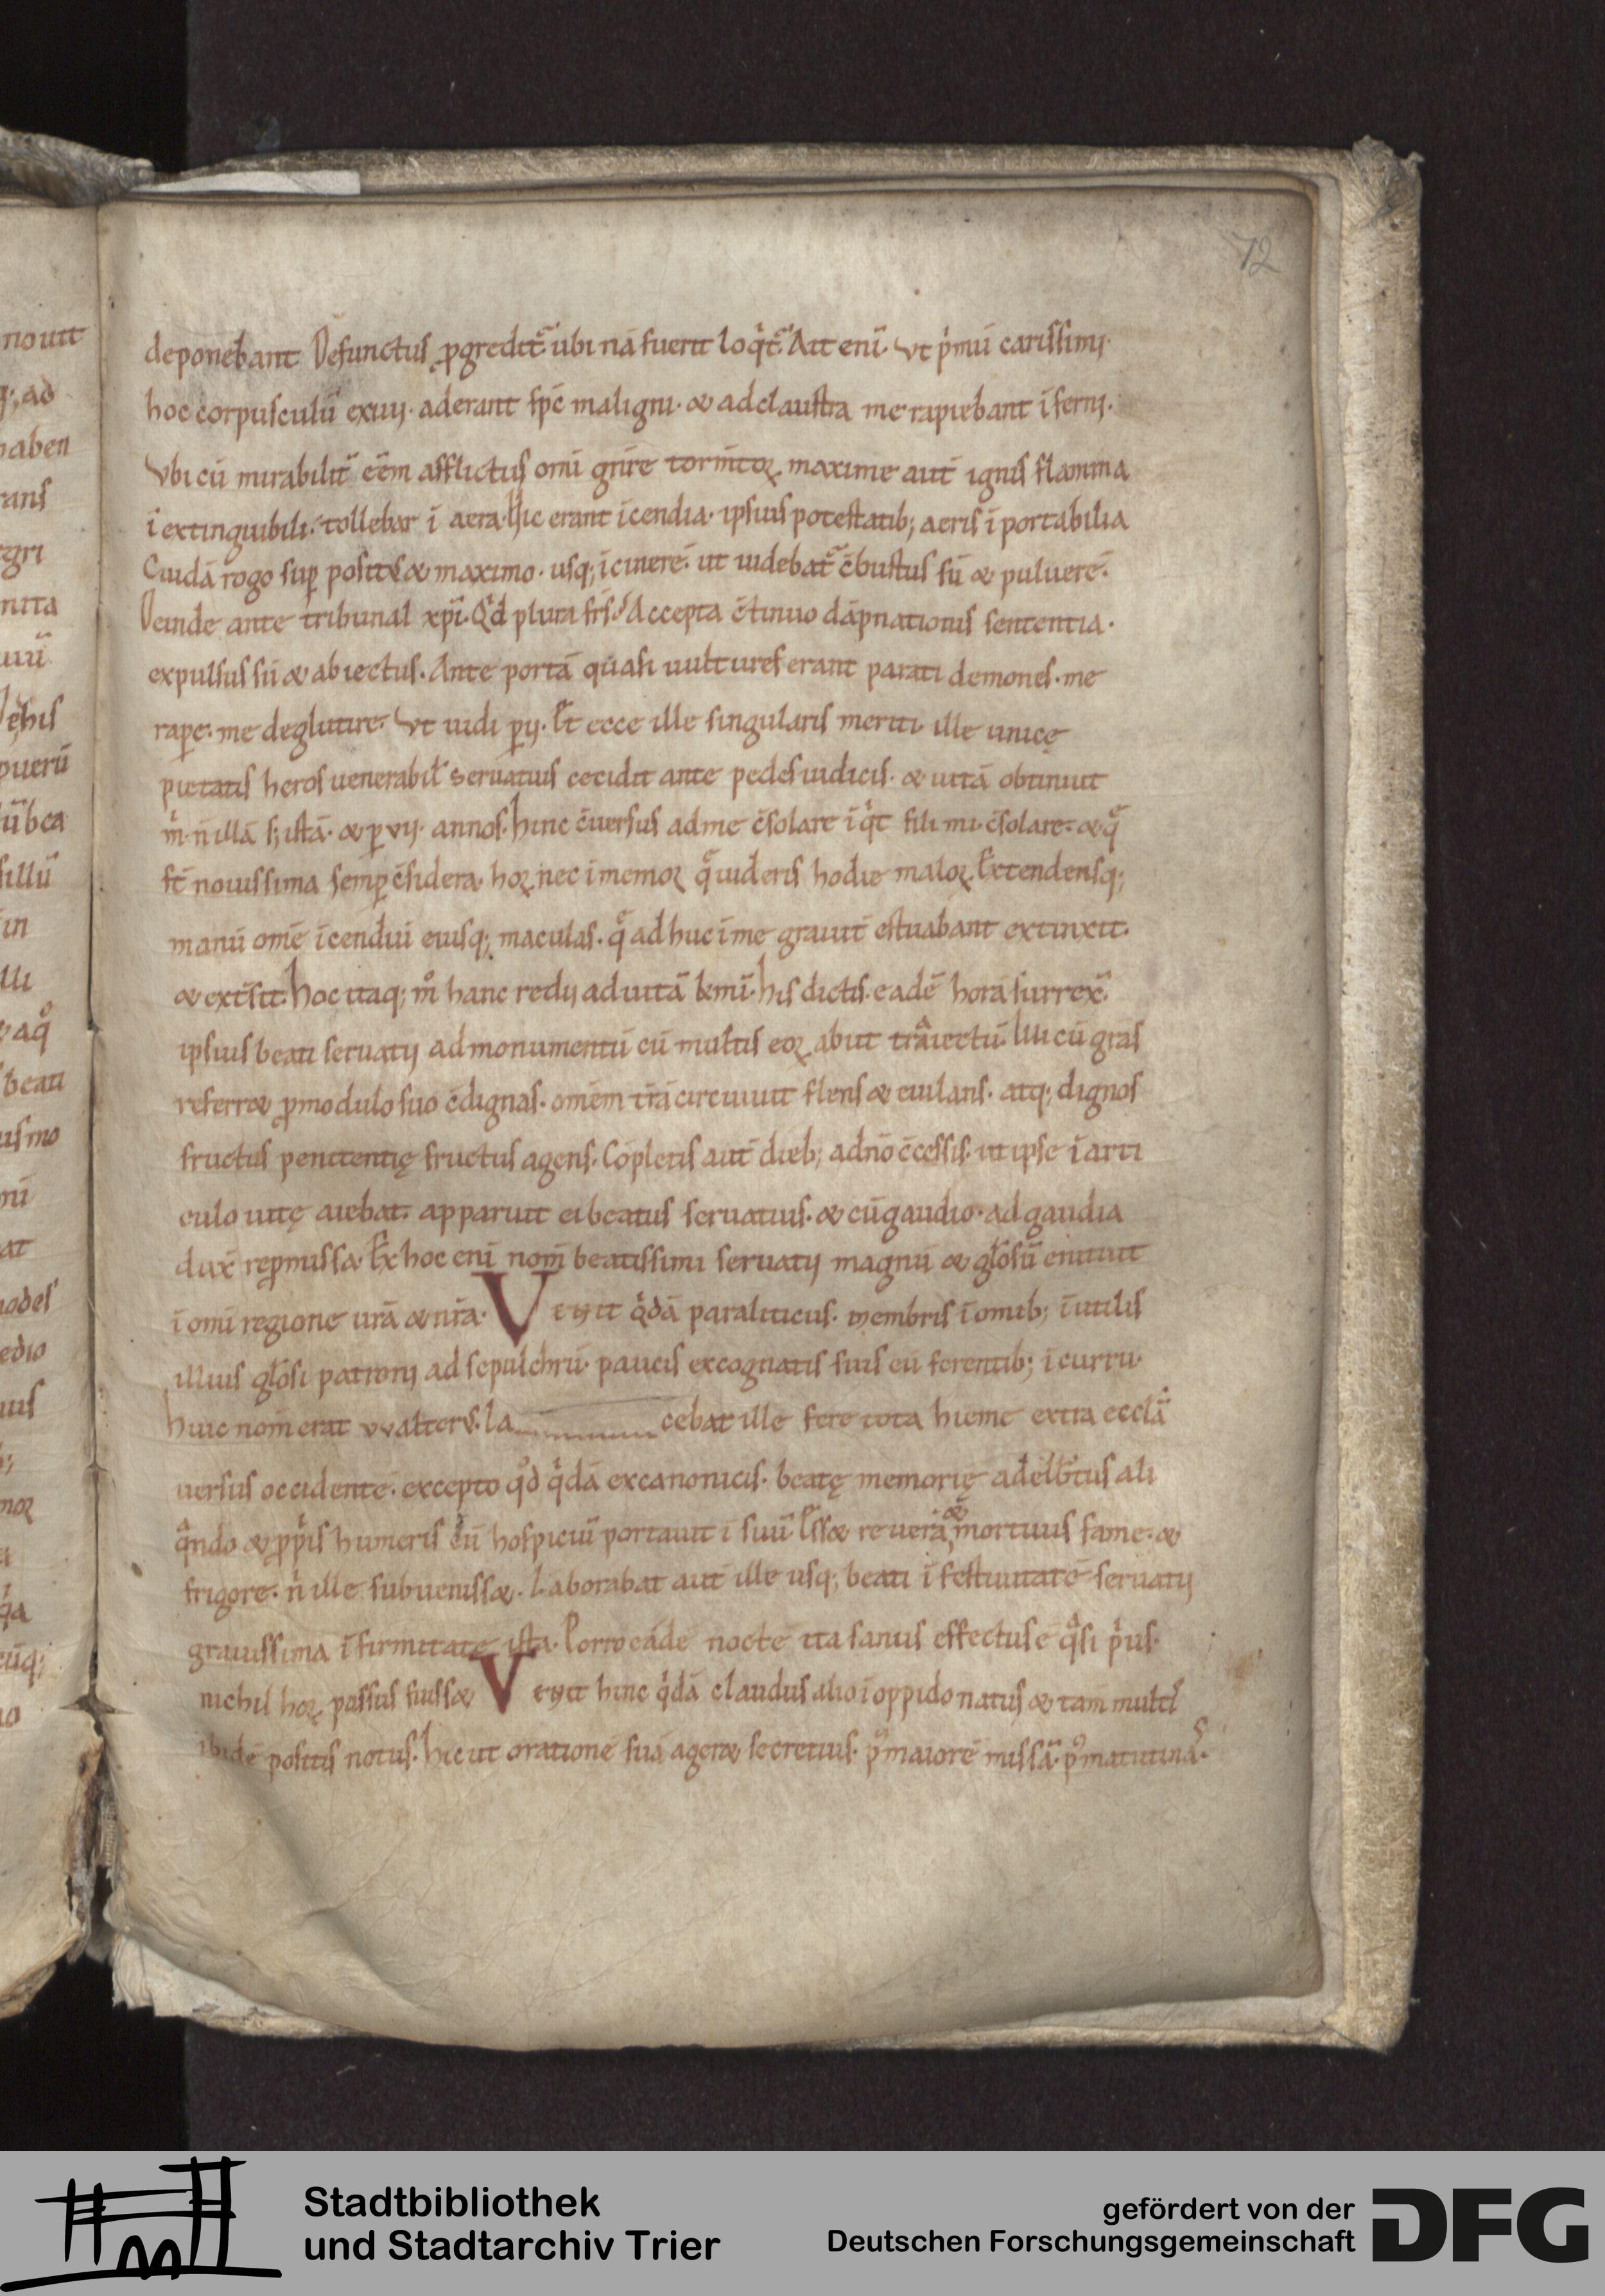 72
deponebant Defunctus ꝓgredit᷑ ubi nā fuerit loq̇t᷑. Ait enī. Vt pͥmū carissimi.
hoc corpusculū exuij. aderant sp̄c maligni. & ad claustra me rapiebant īferni.
Vbi cū mirabilit᷑ eēm afflictus omī gn̄re torm̄toꝝ maxime aut̄ ignis flamma
īextinguibili. tollebar ī aera. Hic erant īcendia. ipsius potestatib; aeris īportabilia
Cuidā rogo suꝑ positus & maximo. usq; ī cinerē. ut uidebat᷑ c̄bustus sū & puluerē.
Deinde ante tribunal xp̄i. Qͥd plura fr̄s? Accepta c̄tinuo dāpnationis sententia.
expulsus sū & abiectus. Ante portā quasi uultures erant parati demones. me
raꝑe. me deglutire. Vt uidi ꝑij. Et ecce ille singularis meriti. ille unicę
pietatis heros uenerabil̓ seruatius cecidit ante pedes iudicis. & uitā obtinuit
mͥ. n̄ illā s; istā. & ꝑ vij. annos. hinc c̄uersus ad me c̄solare īqͥt fili mi. c̄solare. & q̄
st̄ nouissima semꝑ c̄sidera. hoꝝ nec īmemoꝝ q̄ uideris hodie maloꝝ. Extendensq;
manū omē īcendii eiusq; maculas. q̄ adhuc ī me grauit̄ estuabant extinxit.
& ext̄sit. hoc itaq; mͦ hanc redij ad uitā k̄mī. his dictis. eadē hora surrex̄.
ipsius beati seruatij ad monumentū cū multis eoꝝ abiit tͣiectū. Illi cū gr̄as
referr& ꝓ modulo suo c̄dignas. omēm tr̄ā circuiuit flens & eiulans. atq; dignos
fructus penitentię fructus agens. Cōpletis aut̄ dieb; ad nō c̄cessis. ut ipse ī arti
culo uitę aiebat. apparuit ei beatus seruatius. & cū gaudio. ad gaudia
dux̄ repmissa. Ex hoc enī nom̄ beatissimi seruatij magnū & gl̄osū enituit
ī omī regione ur̄ā & nr̄a. VENIT qͥdā paraliticus. membris ī omib; īutilis
illius gl̄osi patronij ad sepulchrū. paucis ex cognatis suis eū ferentib; ī curru.
Huic nom̄ erat vvalterꝰ. Iacebat ille fere tota hieme extra eccl̄ā
uersus occidentē. excepto qͦd qͥdā ex canonicis. beatę memorię adelb̄tus ali
qͣndo & ꝓpͥis humeris eū hospiciū portauit ī suū. Ess& reuerā & mortuus fame. &
frigore. nͥ ille subueniss&. Laborabat aut̄ ille usq; beati ī festiuitatē seruatij
grauissima īfirmitate ista. Porro eādē noctē ita sanus effectus ē qͣsi pͥus.
nichil hoꝝ passus fuiss& VENIT hinc qͥdā claudus alio ī oppido natus & tam multͥ
ibidē positis notus. Hic ut orationē suā ager& secretius. pꝰ maiorē missā. pꝰ matutinas.
Stadtbibliothek
und Stadtarchiv Trier
gefördert von der
Deutschen Forschungsgemeinschaft
DFG